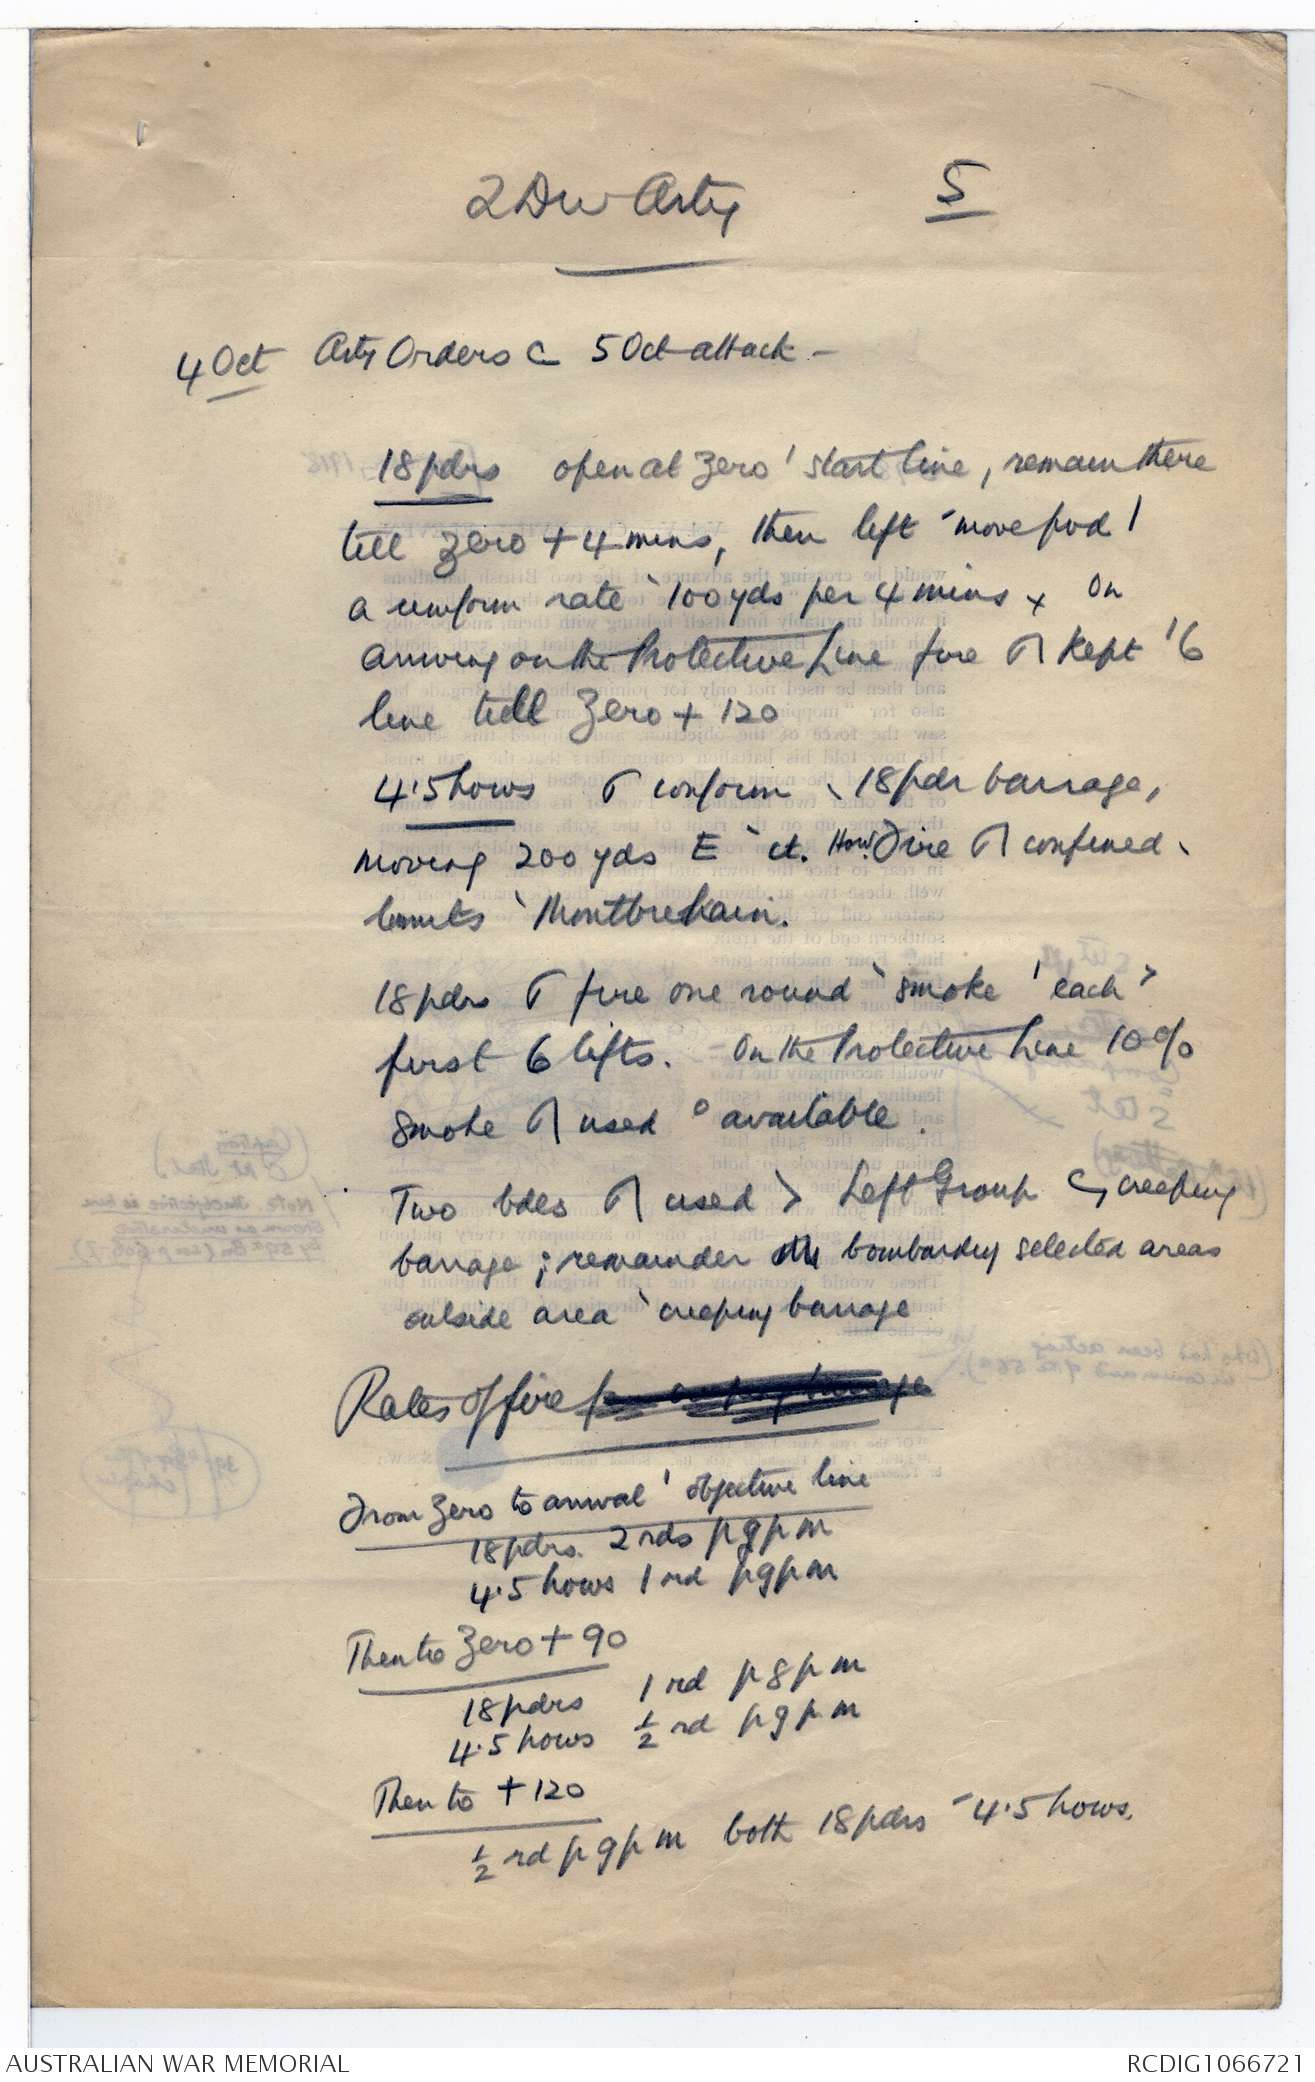 2 Div Arty 5
4 Oct Arty Orders c 5 Oct attack –
18 pdrs open at Zero ' start line, remain there
till Zero + 4 mins, then lift - move fwd '
a uniform rate ` 100 yds per 4 mins x On
arriving on the Protective Line fire kept ' 6
line till Zero + 120
4.5 hows conform ` 18 pdr barrage,
moving 200 yds E ` it. How. Fire confined `
limits ` Montbrehain.
18 pdrs fire one round ` smoke ' each >
first 6 lifts. On the Protective Line 10%
smoke used ° available.
Two bdes used > Left Group creeping
barrage; remainder bombardg selected areas
outside area ` creeping barrage
Rates of fire
From Zero to arrival ' objective line
18 pdrs. 2 rds p g p m
4.5 hows 1 rd p g p m
Then to Zero + 90
18 pdrs 1 rd p g p m
4.5 hows ½ rd p g p m
Then to + 120
½ rd p g p m both 18 pdrs - 4.5 hows.
AUSTRALIAN WAR MEMORIAL RCDIG1066721